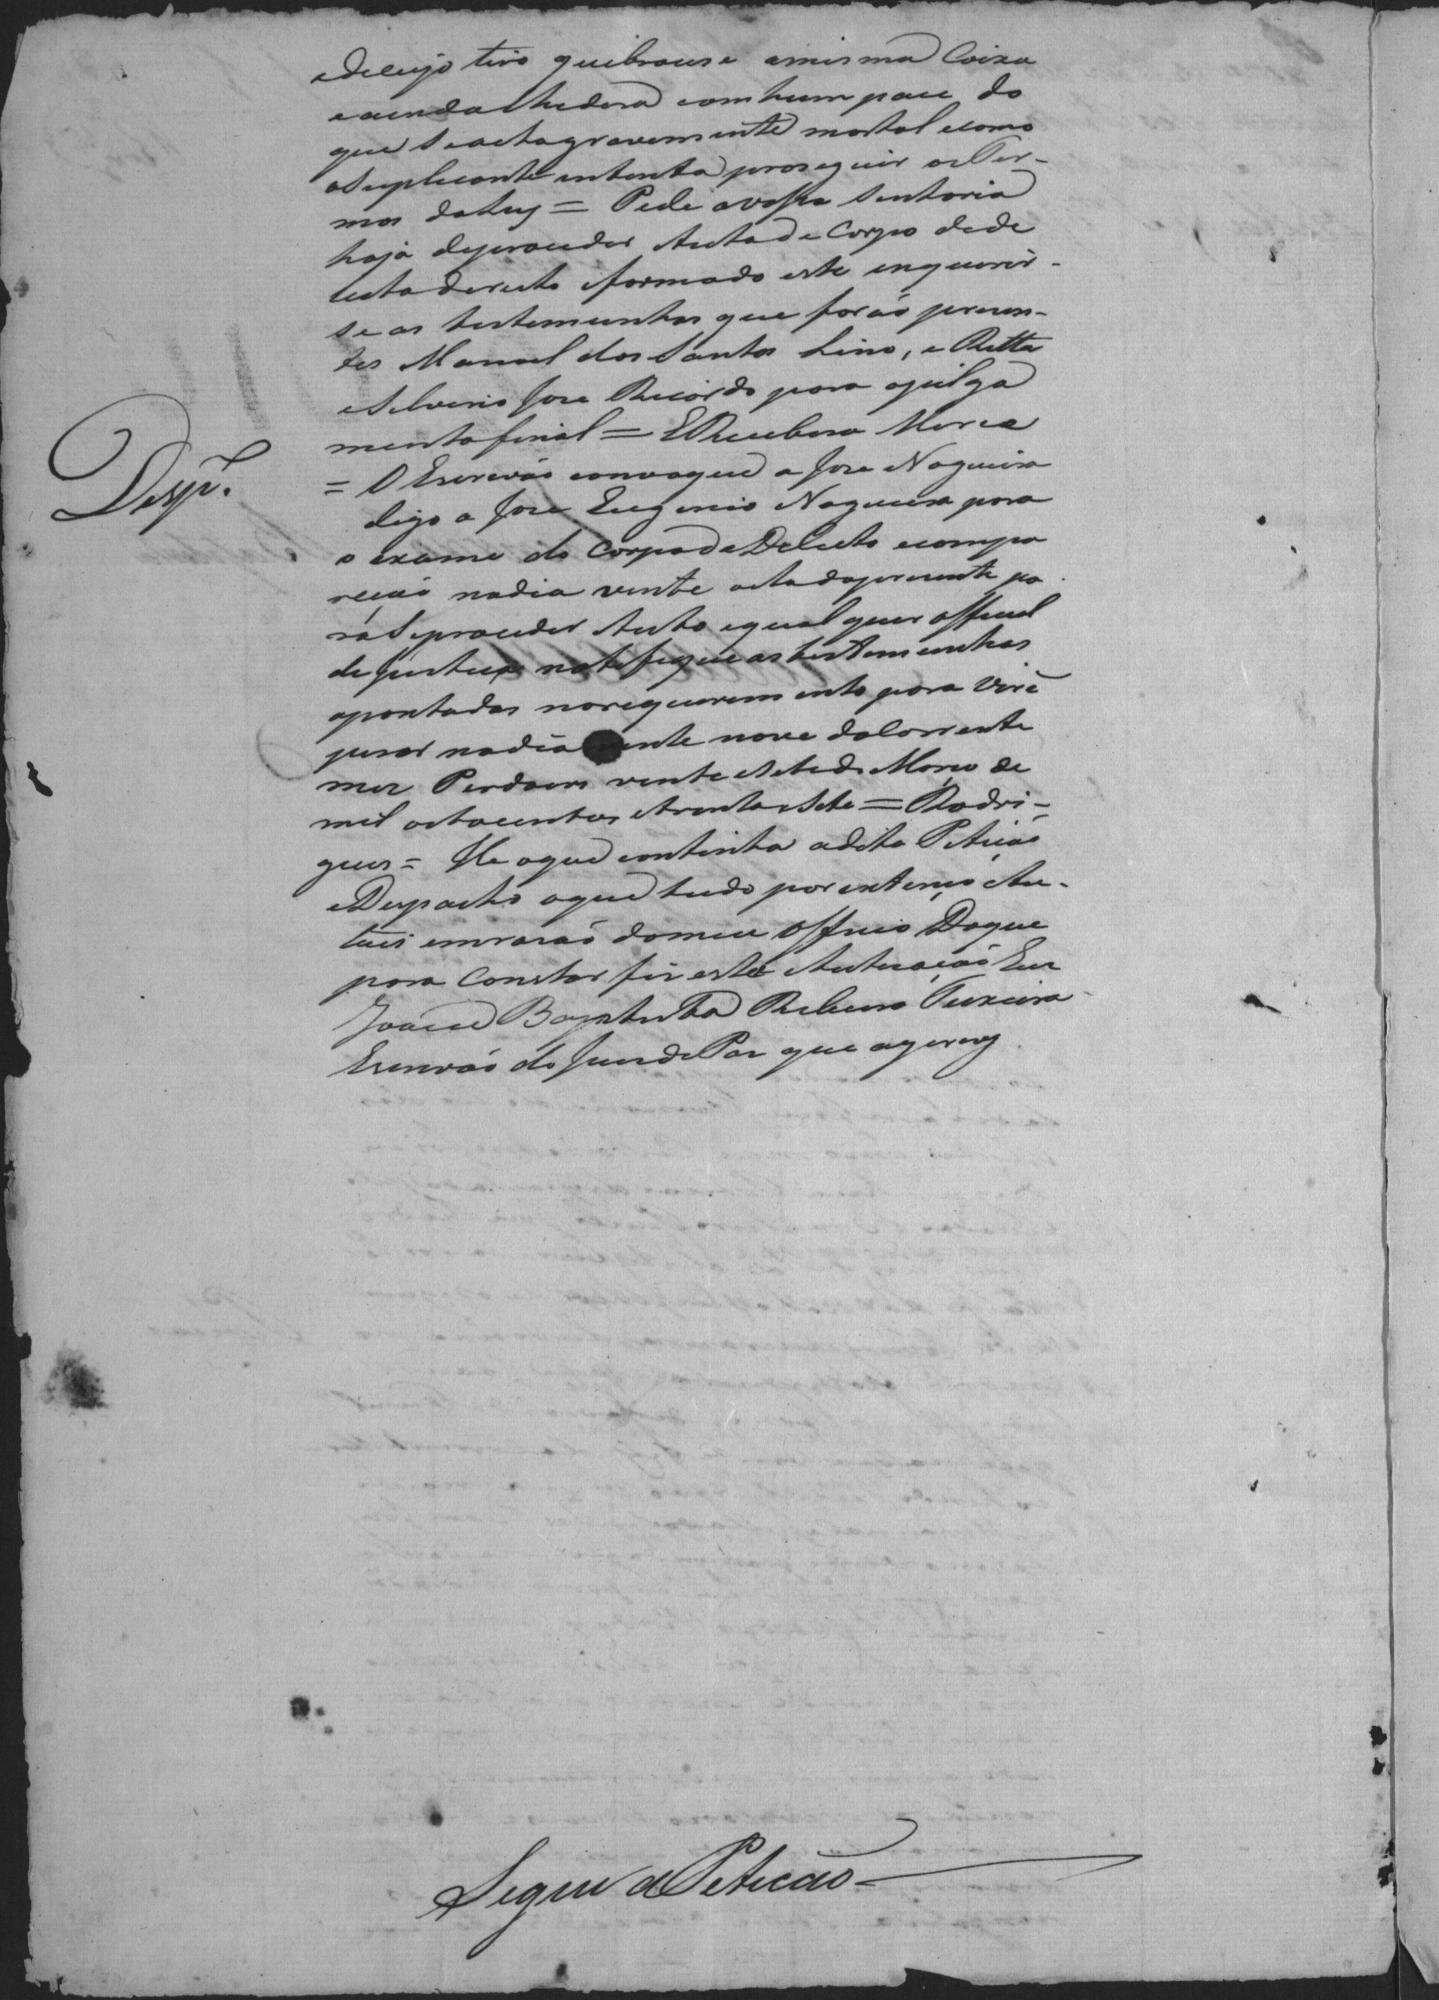 edecujo tiro quebrouse amisma Coixa
eaenda lhedera comhum pau do
que Seachagravemente mortal ecomo
oSuplicante intenta proseguir osTer-
mos daley = Pede avossa Senhoria
haja deproceder Auto de Corpo dede
lictodereito eformado este inquerir-
se as testemunhas que forão prezen-
tes Manoel dos Santos Lino, e Ritta
eSilverio Joze Ricardo para ojulga
mentofinal = ERecebera Merce
Desp.º
= O Escrivão convoque a Joze Nogueira
digo a Joze Eugenio Nogueira para
o exame do Corpo de Delicto ecompa
reção nodia vente oito do prezente pa
ráSeproceder Auto equalquer official
de justiça notefique as testemunhas
apontadas norequerimento para virẽ
jurar nodia vente nove doCorrente
mez Perdoens vente esete de Março de
mil oitocentos etrenta esete = Rodri-
gues = He oque continha adita Petição
eDespacho oque tudo por extenço Au-
tuei emrazão domeu Officio Doque
para Constar fiz esta Autuação Eu
Joaquim Baptista Ribeiro Teixeira
Escrivão do Juiz de Paz que aescrevy
Segue a Petição